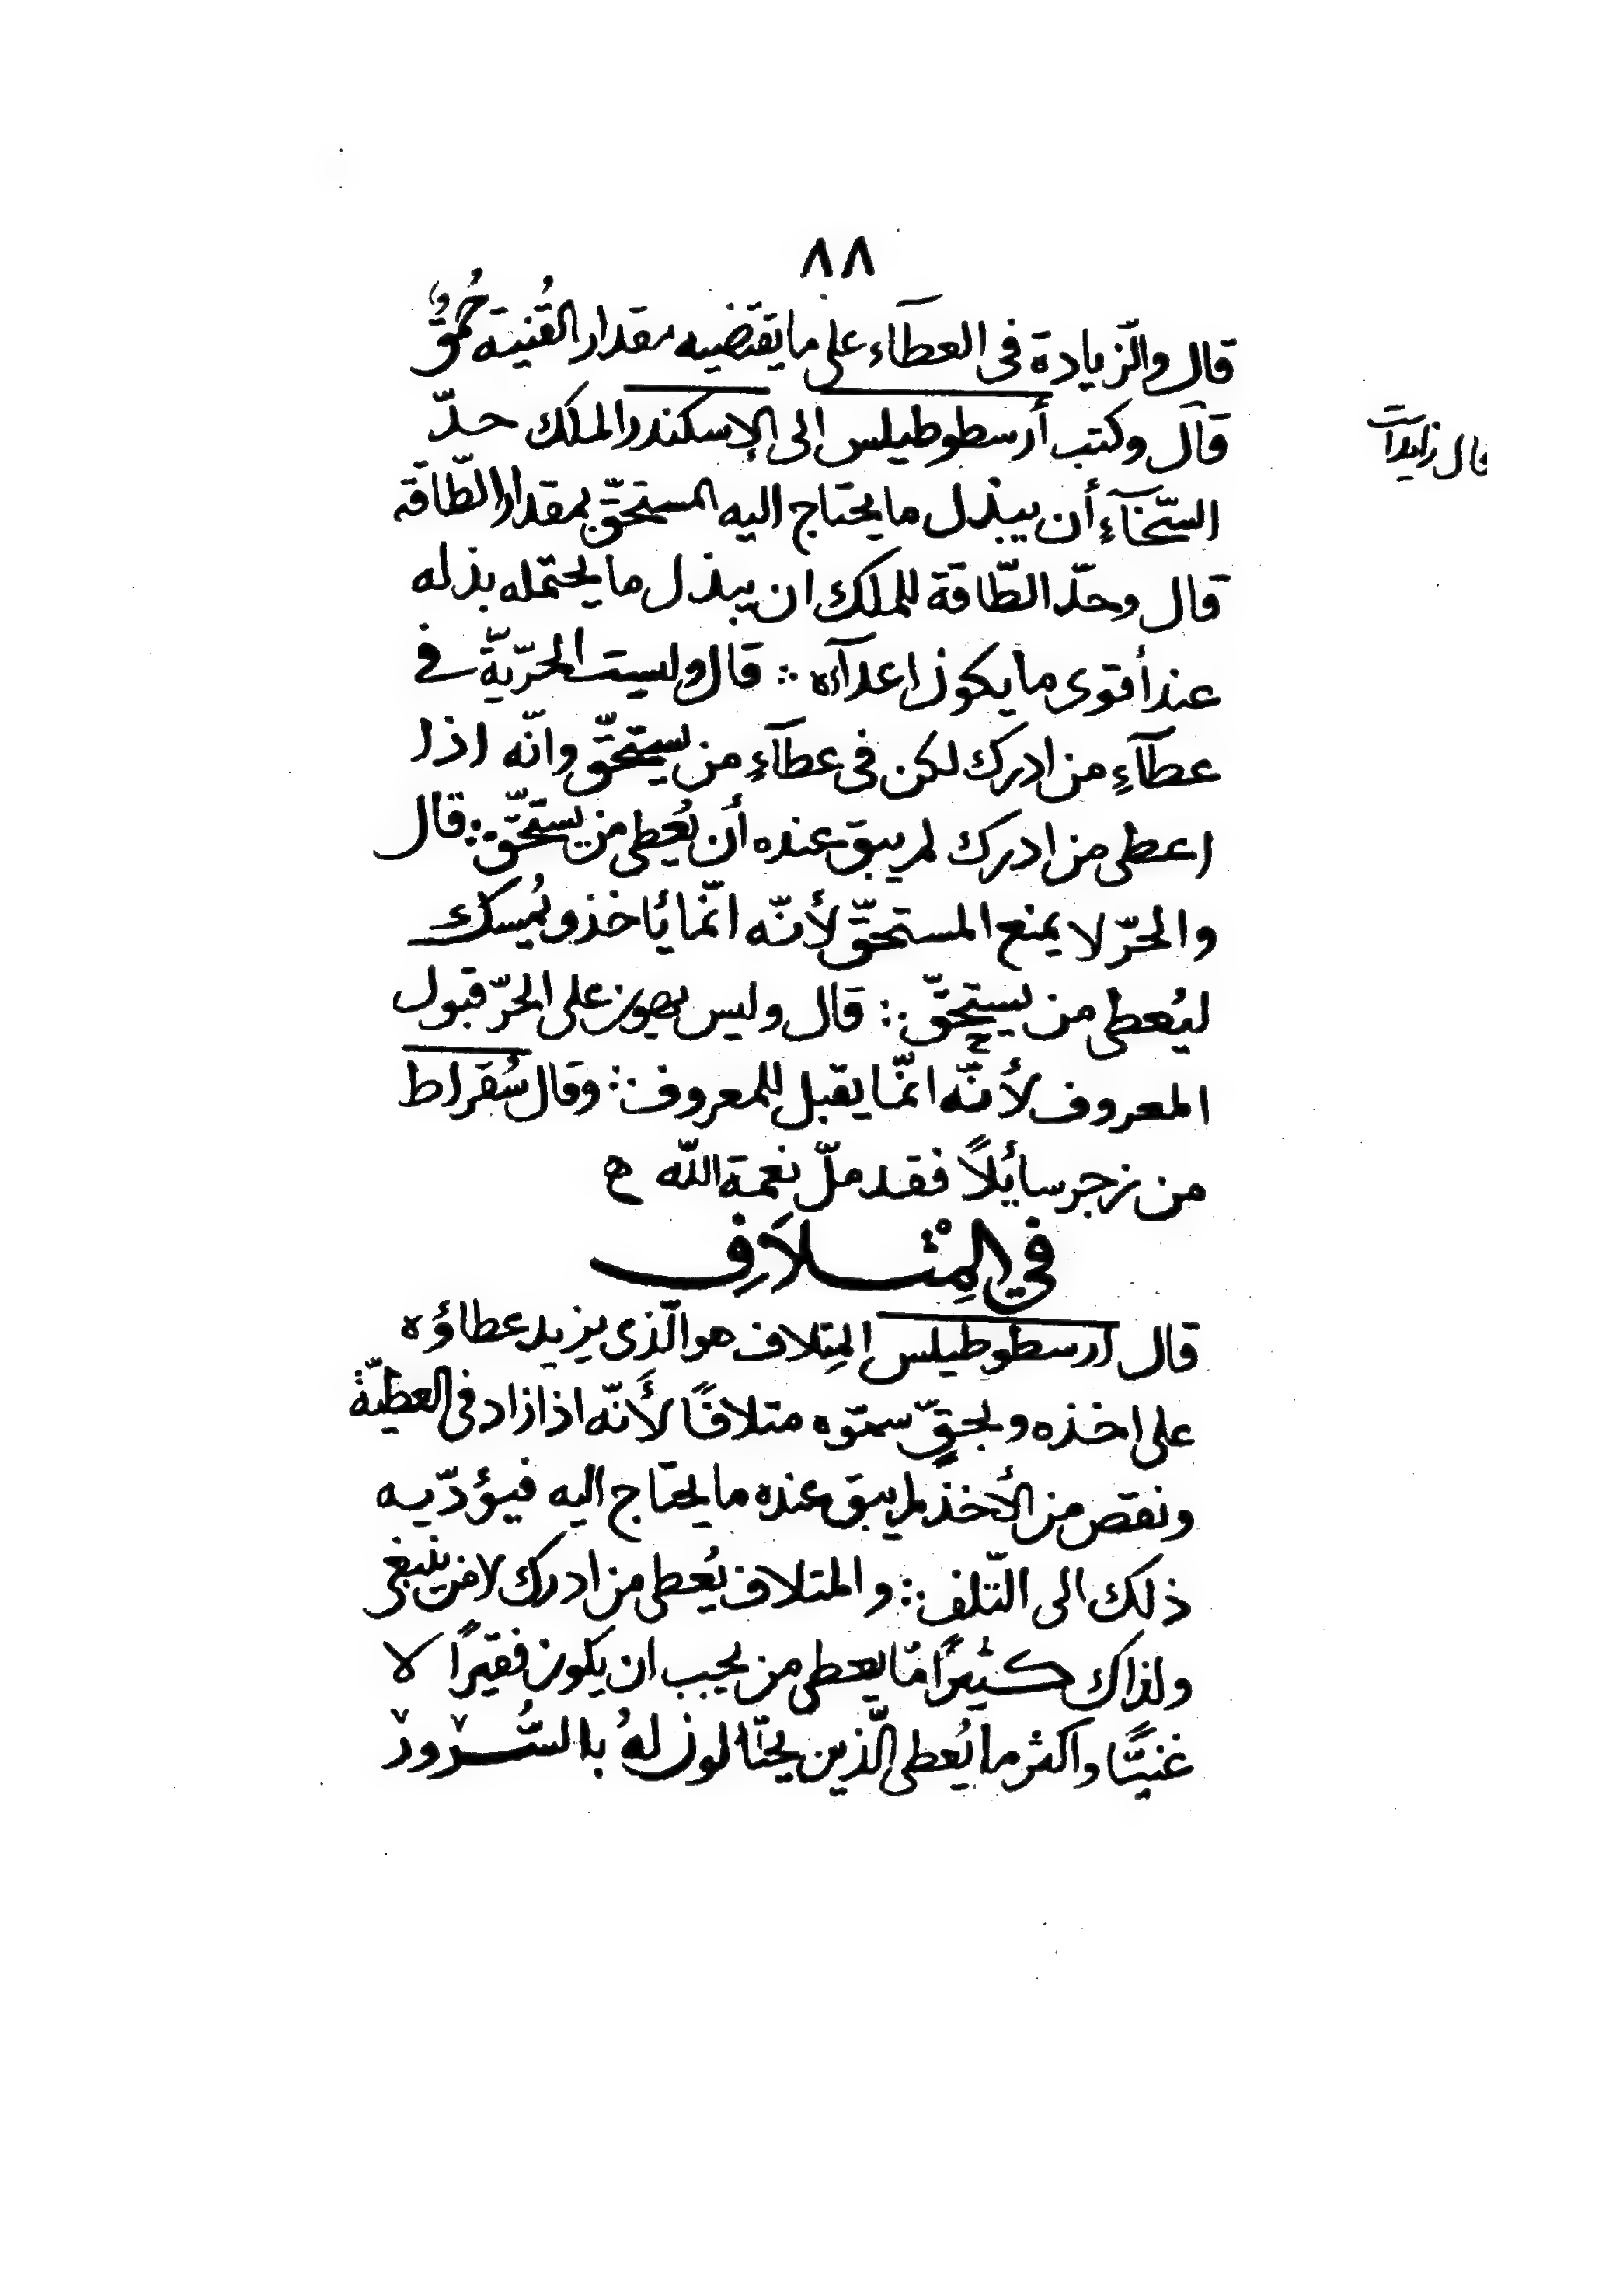 ٨٨
قال والزّيادة فى العطآء على ما يقتضيه مقدار القُنية حُمقٌ
قال وكتب أرسطوطيلس الى الإسكندر الملك حدّ
السّخآءِ أن يبذل ما يحتاج اليه المستحقّ بمقدار الطّاقة
قال وحدّ الطّاقة للملك ان يبذل ما يحتمله بذله
عند أقوى ما يكون اعدآؤه ؞ قال وليست الحرّيّة فى
عطآءِ من ادرك لكن فى عطآءِ من يستحقّ وانّه اذا
اعطى من ادرك لم يبق عنده أن يُعطى من يستحقّ ؞ قال
والحرّ لا يمنع المستحقّ لأنّه انّما يأخذ ويُمسك
ليُعطى من يستحقّ ؞ قال وليس يهون على الحرّ قبول
المعروف لأنّه انّما يقبل للمعروف ؞ وقال سُقراط
من زجر سائلاً فقد ملّ نعمة الله ه
في المِتْلاَفِ
قال ارسطوطيلس المِتلاف هو الّذى يزيد عطاؤه
على اخذه وبحقٍّ سمّوه متلافًا لأَنّه اذا زاد فى العطيّة
ونقص من الأخذ لم يبق عنده ما يحتاج اليه فيؤدّيه
ذلك الى التّلف ؞ والمتلاف يُعطى من ادرك لا من ينبغى
ولذاك كثيرًا مّا يعطى من يجب ان يكون فقيرًا لا
غنيًّا واكثر ما يُعطى الّذين يحتالون لهُ بالسُّرور
قال زايدات